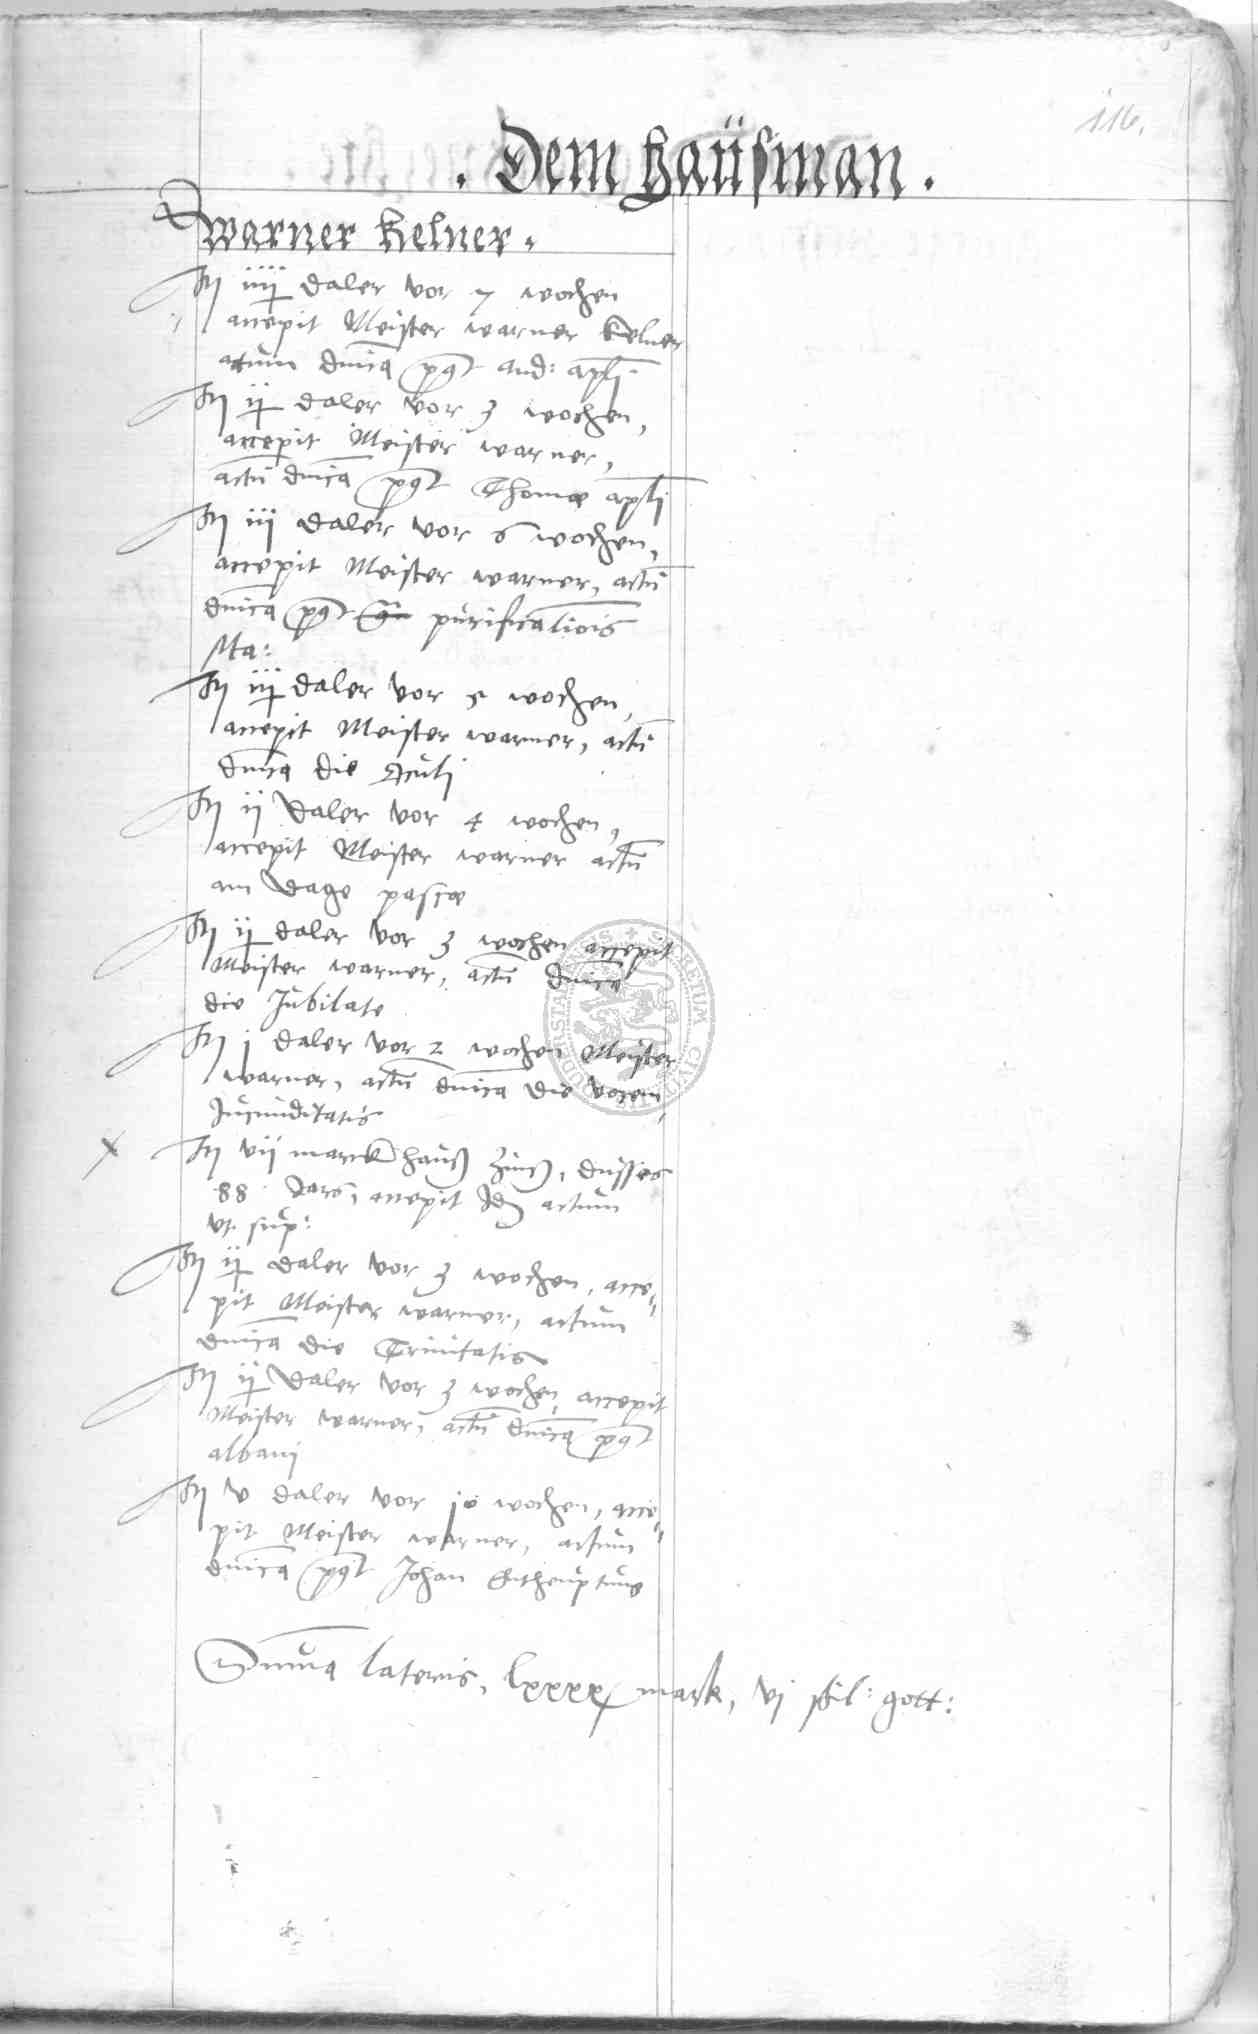 116.
. Dem haüsman .
Warner Kelner.
It iiij daler vor 7 wochen
accepit Meister warner Kelner
actum dnica post And: apli
It ij daler vor 3 wochen,
accepit Meister warner,
actu dnica post Thomæ apli
It iij daler vor 6 wochen,
accepit Meister warner, actu
dnica post purificatiois
Ma:
It iij daler vor 5 wochen,
accepit Meister warner, actu
dnica die Oculi
It ij daler vor 4 wochen,
accepit Meister warner actu
am dage pascæ
It ij daler vor 3 wochen accepit
Meister warner, actu dnica
die Jubilate
It j daler vor 2 wochen Meister
warner, actu dnica die vocem
Jucunditatis
It vij marck hauß zinß, dusses
88 Jars, accepit Id actum
vt sup:
It ij daler vor 3 wochen, acce-
pit Meister warner, actum
dnica die Trinitatis
It ij daler vor 3 wochen accepit
Meister warner, actu dnica post
albani
It v daler vor 10 wochen, acce-
pit Meister warner, actum
dnica post Johan Entheuptung
Summa lateris, lxxxx mark, vj schil: gott: